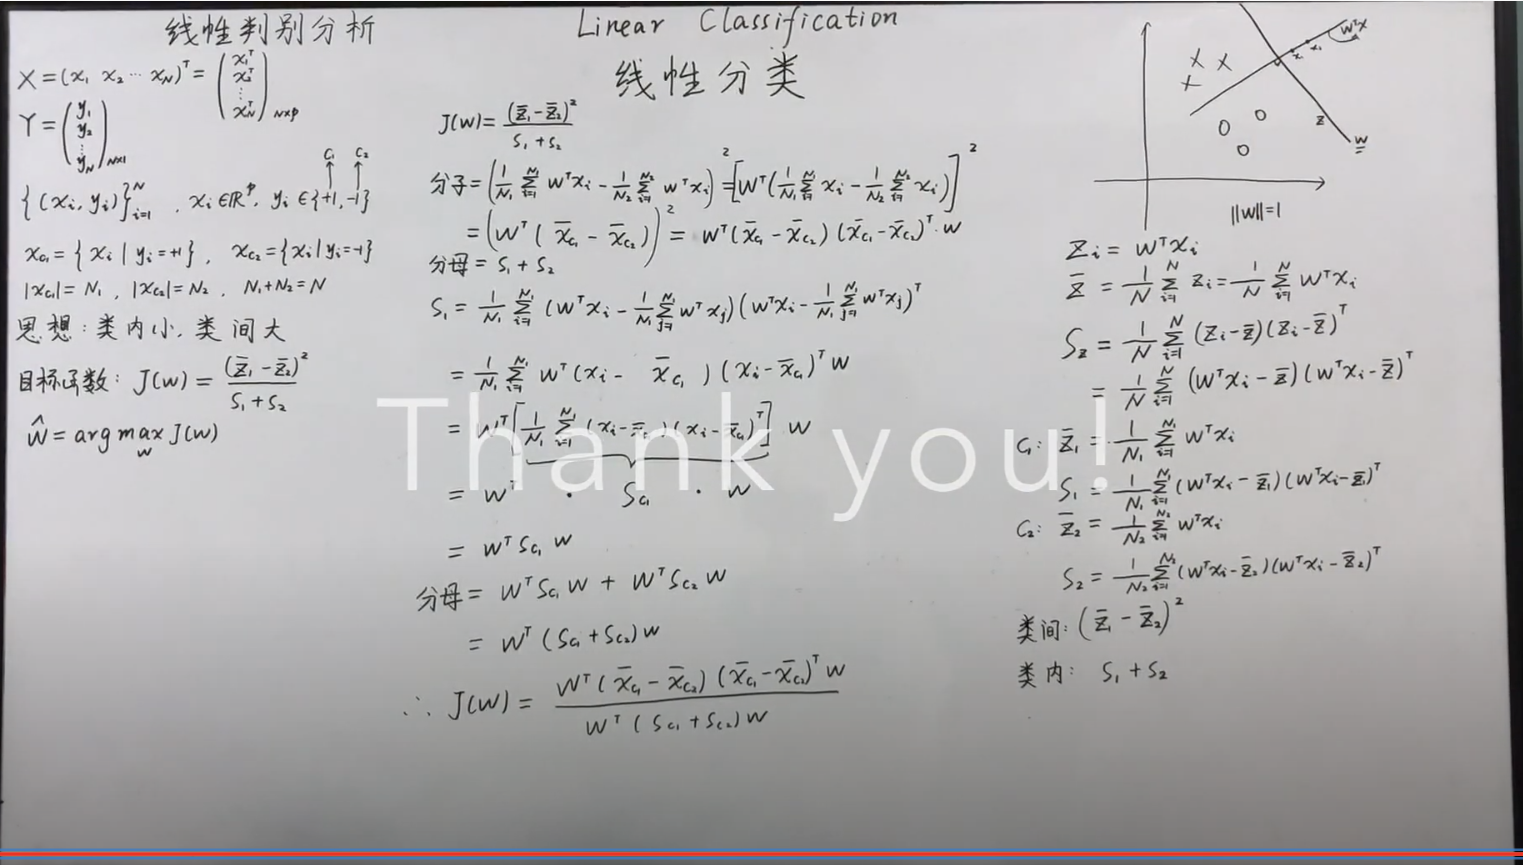 线性判别分析
X = (x₁ x₂ ⋯ x_N)ᵀ = (x₁ᵀ x₂ᵀ ⋮ x_Nᵀ)_{N×p}
Y = (y₁ y₂ ⋮ y_N)_{N×1}
C₁ C₂
{(xᵢ, yᵢ)}ᵢ₌₁ᴺ , xᵢ ∈ ℝᵖ, yᵢ ∈ {+1, -1}
x_{C₁} = {xᵢ | yᵢ = +1}, x_{C₂} = {xᵢ | yᵢ = -1}
|x_{C₁}| = N₁ , |x_{C₂}| = N₂ , N₁+N₂ = N
思想: 类内小, 类间大
目标函数: J(w) = (z̄₁ - z̄₂)² / (S₁ + S₂)
ŵ = arg max_w J(w)
Linear Classification
线性分类
J(w) = (z̄₁ - z̄₂)² / (S₁ + S₂)
分子 = (1/N₁ Σᵢ₌₁^{N₁} wᵀxᵢ - 1/N₂ Σᵢ₌₁^{N₂} wᵀxᵢ)² = [wᵀ(1/N₁ Σᵢ₌₁^{N₁} xᵢ - 1/N₂ Σᵢ₌₁^{N₂} xᵢ)]²
= (wᵀ(x̄_{C₁} - x̄_{C₂}))² = wᵀ(x̄_{C₁} - x̄_{C₂})(x̄_{C₁} - x̄_{C₂})ᵀ·w
分母 = S₁ + S₂
S₁ = 1/N₁ Σᵢ₌₁^{N₁} (wᵀxᵢ - 1/N₁ Σⱼ₌₁^{N₁} wᵀxⱼ)(wᵀxᵢ - 1/N₁ Σⱼ₌₁^{N₁} wᵀxⱼ)ᵀ
= 1/N₁ Σᵢ₌₁^{N₁} wᵀ(xᵢ - x̄_{C₁})(xᵢ - x̄_{C₁})ᵀw
= wᵀ[1/N₁ Σᵢ₌₁^{N₁} (xᵢ - x̄_{C₁})(xᵢ - x̄_{C₁})ᵀ] w
= wᵀ · S_{C₁} · w
= wᵀS_{C₁}w
分母 = wᵀS_{C₁}w + wᵀS_{C₂}w
= wᵀ(S_{C₁} + S_{C₂})w
∴ J(w) = wᵀ(x̄_{C₁} - x̄_{C₂})(x̄_{C₁} - x̄_{C₂})ᵀw / wᵀ(S_{C₁} + S_{C₂})w
wᵀx
xᵢ
z
w
‖w‖=1
zᵢ = wᵀxᵢ
z̄ = 1/N Σᵢ₌₁ᴺ zᵢ = 1/N Σᵢ₌₁ᴺ wᵀxᵢ
S_z = 1/N Σᵢ₌₁ᴺ (zᵢ - z̄)(zᵢ - z̄)ᵀ
= 1/N Σᵢ₌₁ᴺ (wᵀxᵢ - z̄)(wᵀxᵢ - z̄)ᵀ
C₁: z̄₁ = 1/N₁ Σᵢ₌₁^{N₁} wᵀxᵢ
S₁ = 1/N₁ Σᵢ₌₁^{N₁} (wᵀxᵢ - z̄₁)(wᵀxᵢ - z̄₁)ᵀ
C₂: z̄₂ = 1/N₂ Σᵢ₌₁^{N₂} wᵀxᵢ
S₂ = 1/N₂ Σᵢ₌₁^{N₂} (wᵀxᵢ - z̄₂)(wᵀxᵢ - z̄₂)ᵀ
类间: (z̄₁ - z̄₂)²
类内: S₁ + S₂
Thank you!